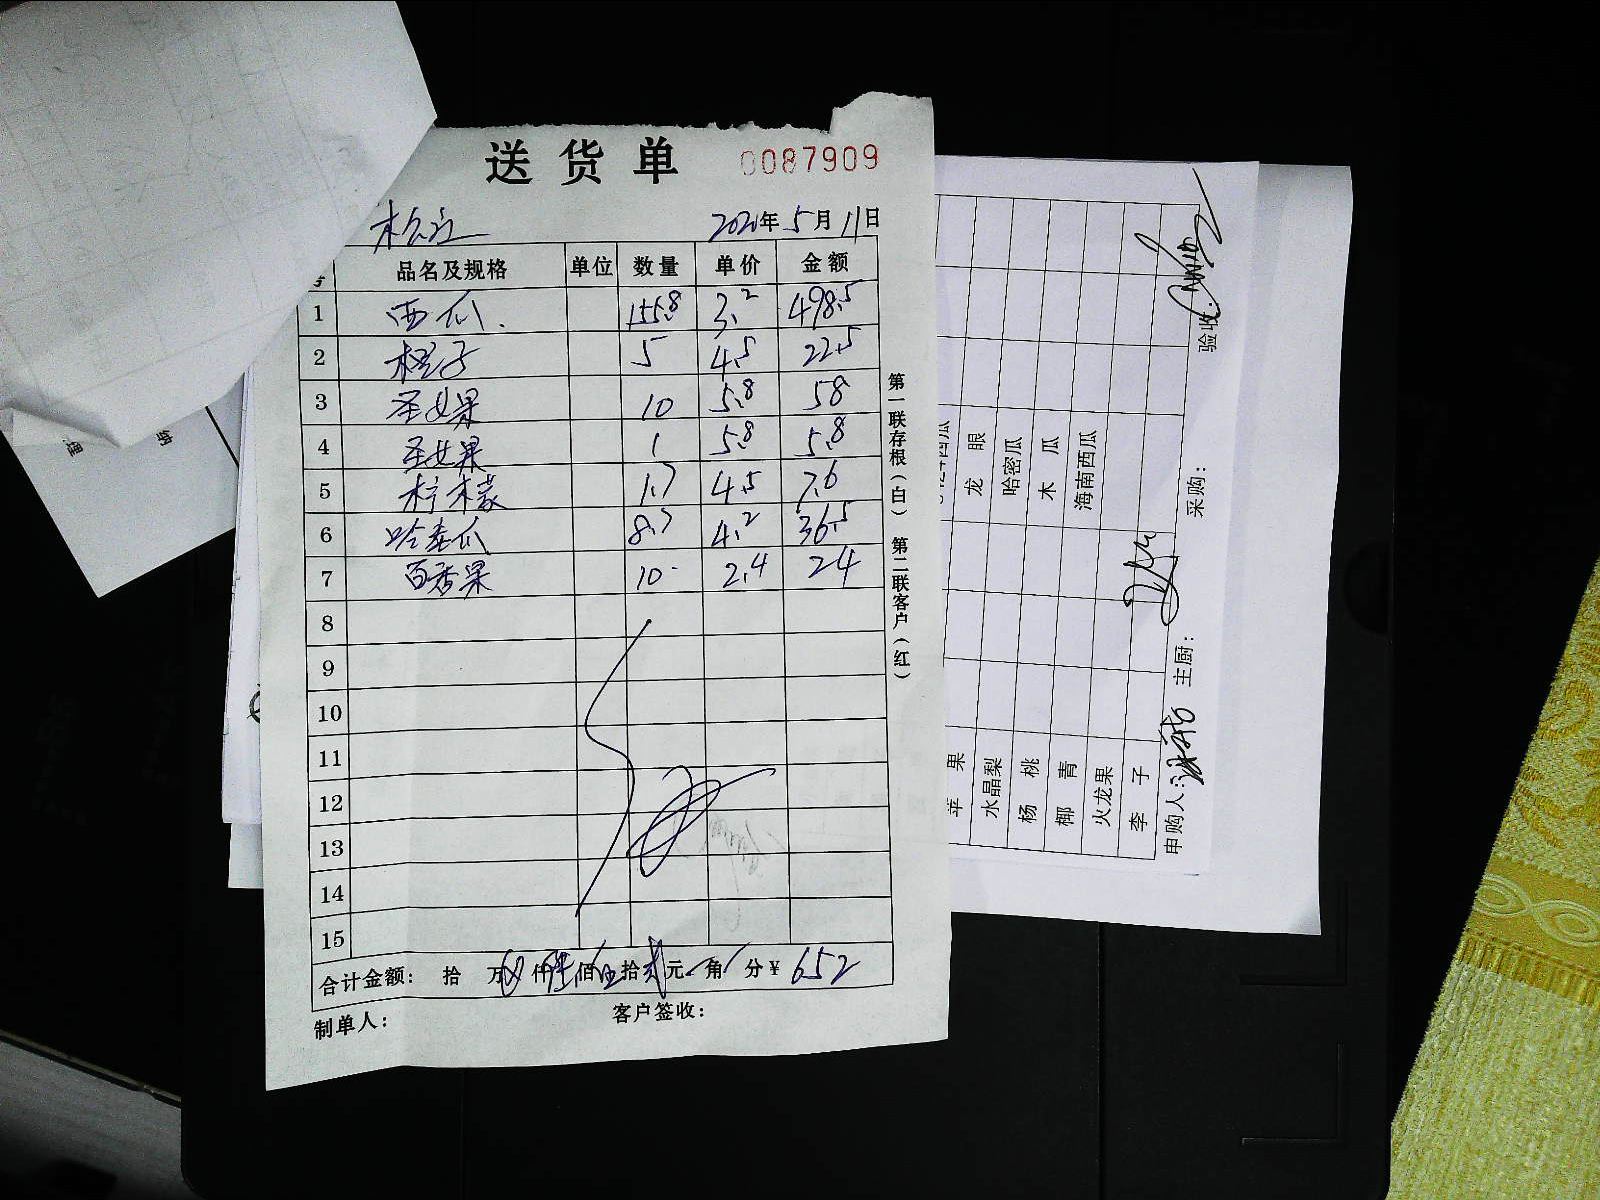 送货单 0087909
松江 2020年5月11日
品名及规格 单位 数量 单价 金额
1 西瓜 155.8 3.2 498.5
2 橙子 5 4.5 22.5
3 圣女果 10 5.8 58
4 圣女果 1 5.8 5.8
5 柠檬 1.7 4.5 7.6
6 哈蜜瓜 8.7 4.2 36.5
7 百香果 10 2.4 24
8
9
10
11
12
13
14
15
合计金额： 拾 万 仟陆佰伍拾贰元 角 分￥ 652
制单人： 客户签收：
第一联存根（白） 第二联客户（红）
龙眼
哈密瓜
木瓜
海南西瓜
苹果
水晶梨
杨桃
椰青
火龙果
李子
申购人： 主厨： 采购： 验收：
纳
理